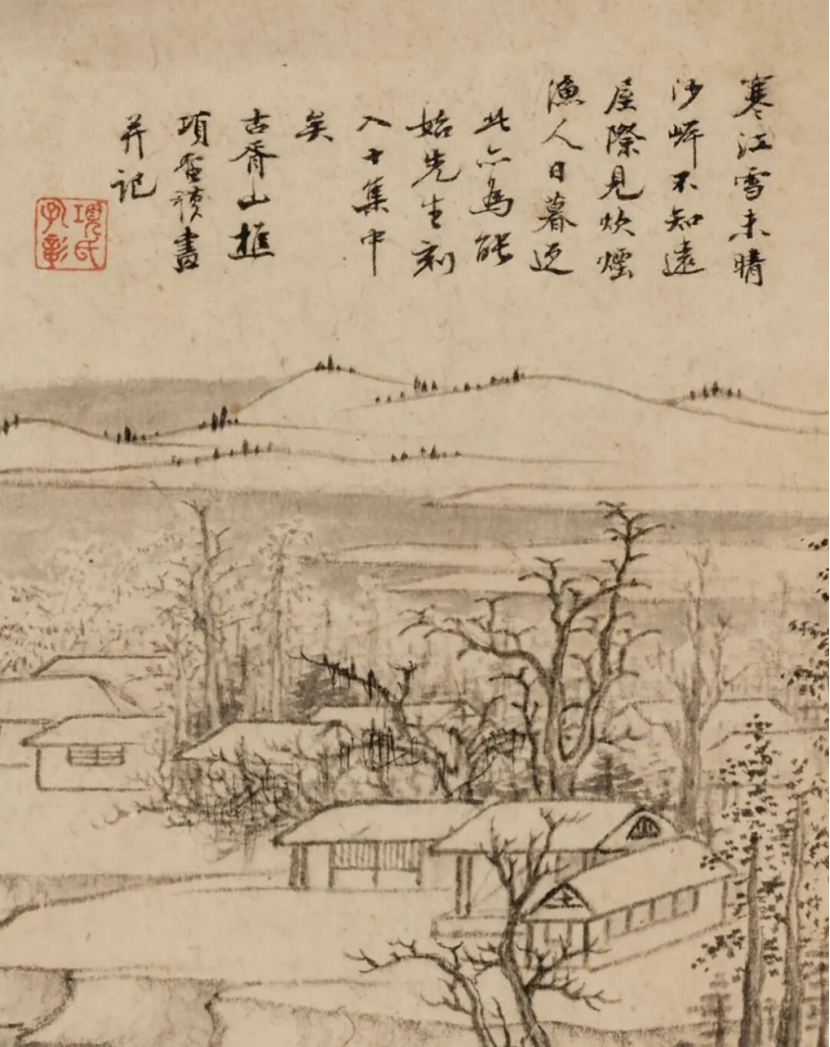 寒江雪未晴
沙岸不知遠
屋際見炊煙
漁人日暮返
此亦為能
始先生刻
入十集中
矣
古胥山樵
項聖謨畫
并記
項氏孔彰